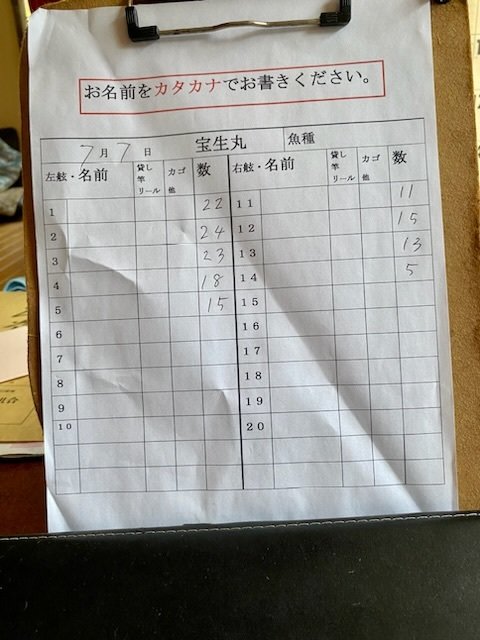 お名前をカタカナでお書きください。
7月7日 宝生丸 魚種
左舷・名前 貸し竿リール カゴ他 数 右舷・名前 貸し竿リール カゴ他 数
1 22 11 11
2 24 12 15
3 23 13 13
4 18 14 5
5 15 15
6 16
7 17
8 18
9 19
10 20